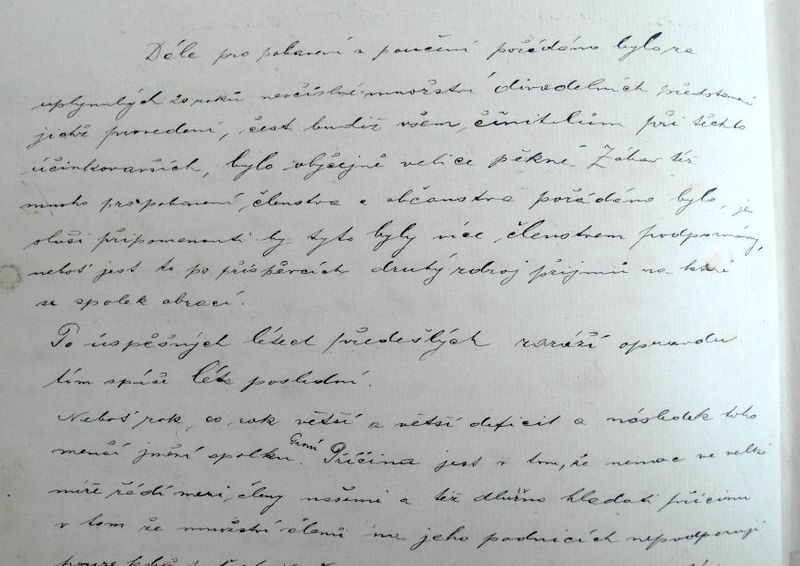 Dále pro pobavení a poučení pořádáno bylo za
uplynulých 20 roků nesčíslné množství divadelních představení
jichž provedení, čest budiž všem, činitelům při těchto
účinkovavších, bylo obyčejně velice pěkné. Zábav též
mnoho pro pobavení členstva a občanstva pořádáno bylo, jen
sluší připomenouti by tyto byly více členstvem podporovány,
neboť jest to po příspěvcích druhý zdroj příjmů na které
se spolek obrací.
Po úspěšných létech předešlých zaráží opravdu
tím spíše léta poslední.
Neboť rok, co rok větší a větší deficit a následek toho
menší jmění spolku. První Příčina jest v tom, že nemoc ve velké
míře řádí mezi členy našemi a též dlužno hledati příčinu
v tom že množství členů na jeho podnicích nepodporují